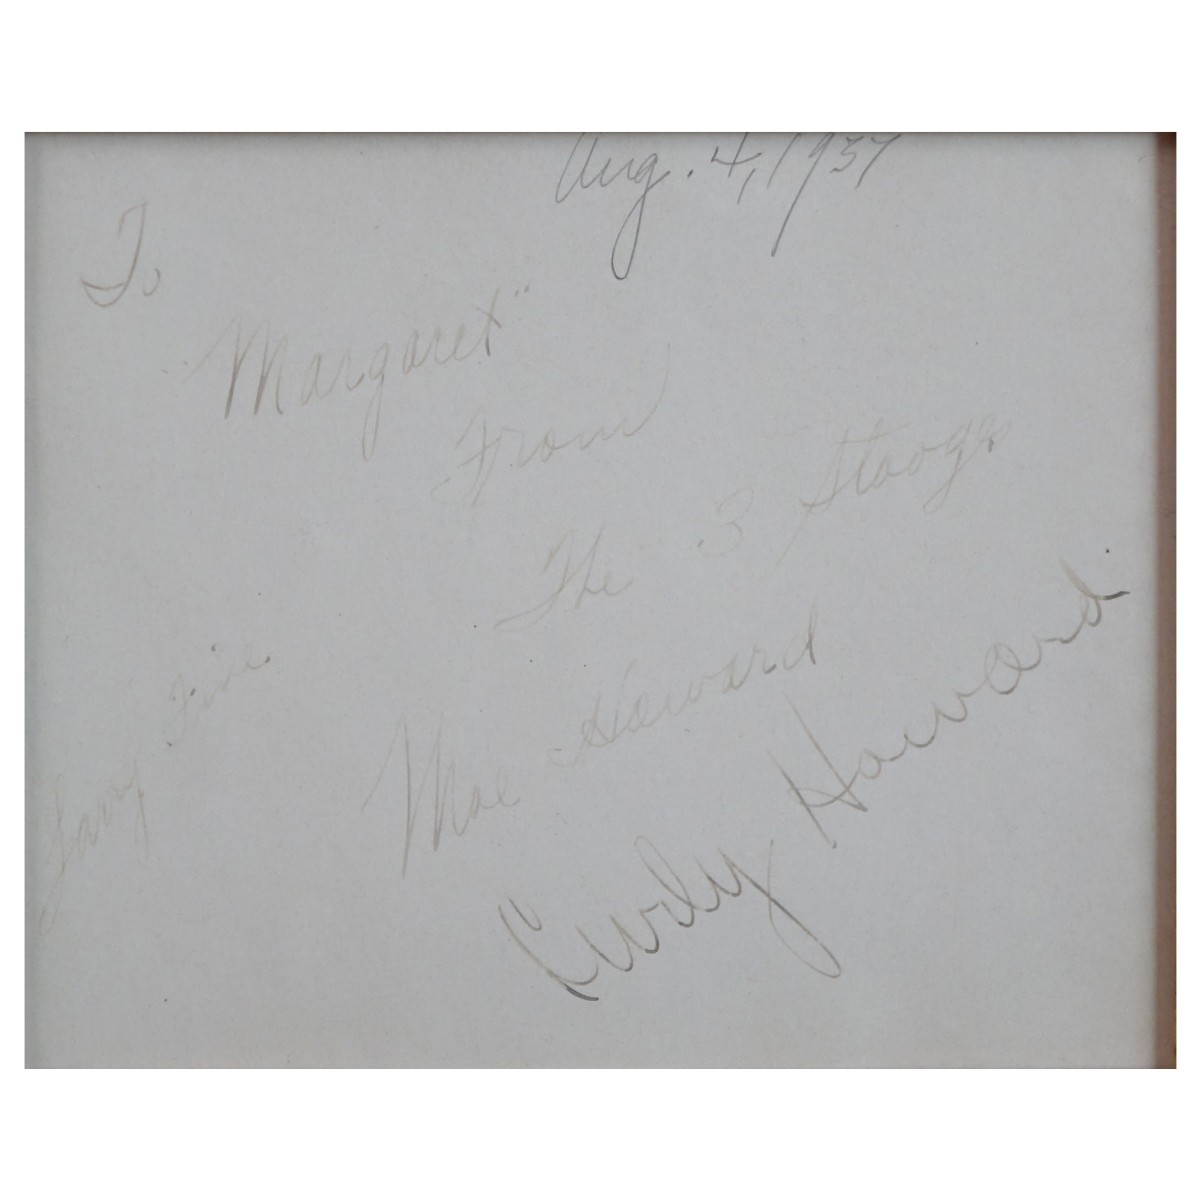 Aug. 4, 1937
To
Margaret"
From
The 3 Stooges
Larry Fine
Moe Howard
Curly Howard